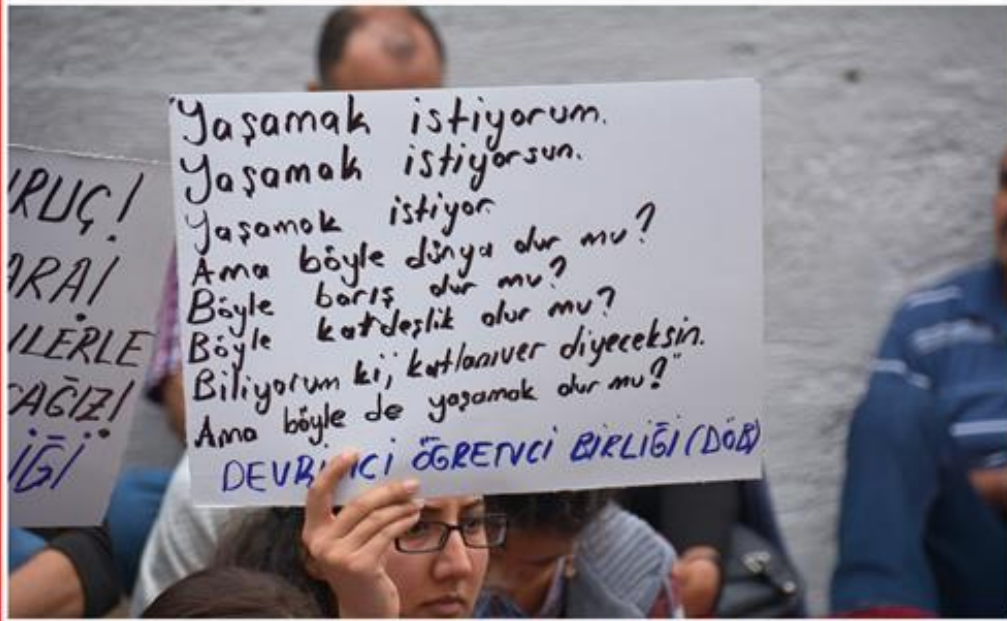 "Yaşamak istiyorum.
Yaşamak istiyorsun.
Yaşamak istiyor.
Ama böyle dünya olur mu?
Böyle barış olur mu?
Böyle kardeşlik olur mu?
Biliyorum ki, katlanıver diyeceksin.
Ama böyle de yaşamak olur mu?"
ÖĞRENCİ BİRLİĞİ (DÖB)
RUÇ!
ARA!
İLERLE
CAĞIZ!
İĞİ